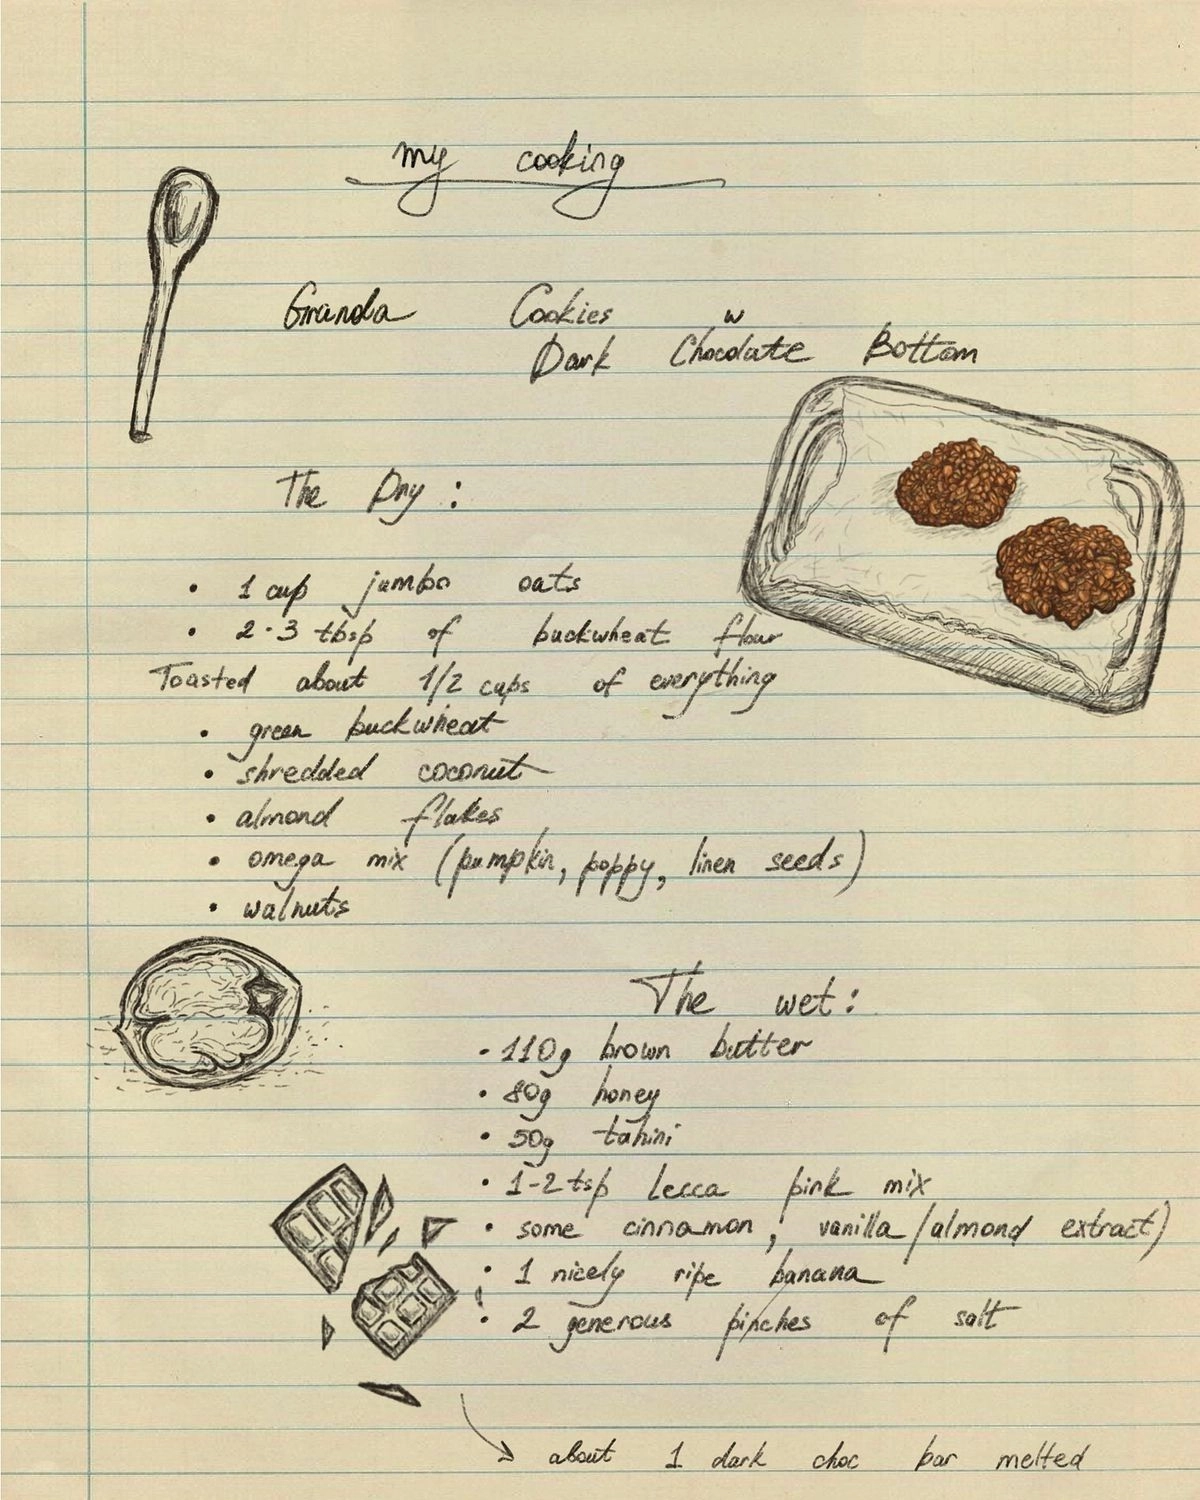 my cooking
Granola Cookies w
Dark Chocolate Bottom
The Dry :
• 1 cup jumbo oats
• 2-3 tbsp of buckwheat flour
Toasted about 1/2 cups of everything
• green buckwheat
• shredded coconut
• almond flakes
• omega mix (pumpkin, poppy, linen seeds)
• walnuts
The wet:
• 110g brown butter
• 80g honey
• 50g tahini
• 1-2 tsp lecca pink mix
• some cinnamon, vanilla/almond extract)
• 1 nicely ripe banana
• 2 generous pinches of salt
about 1 dark choc bar melted